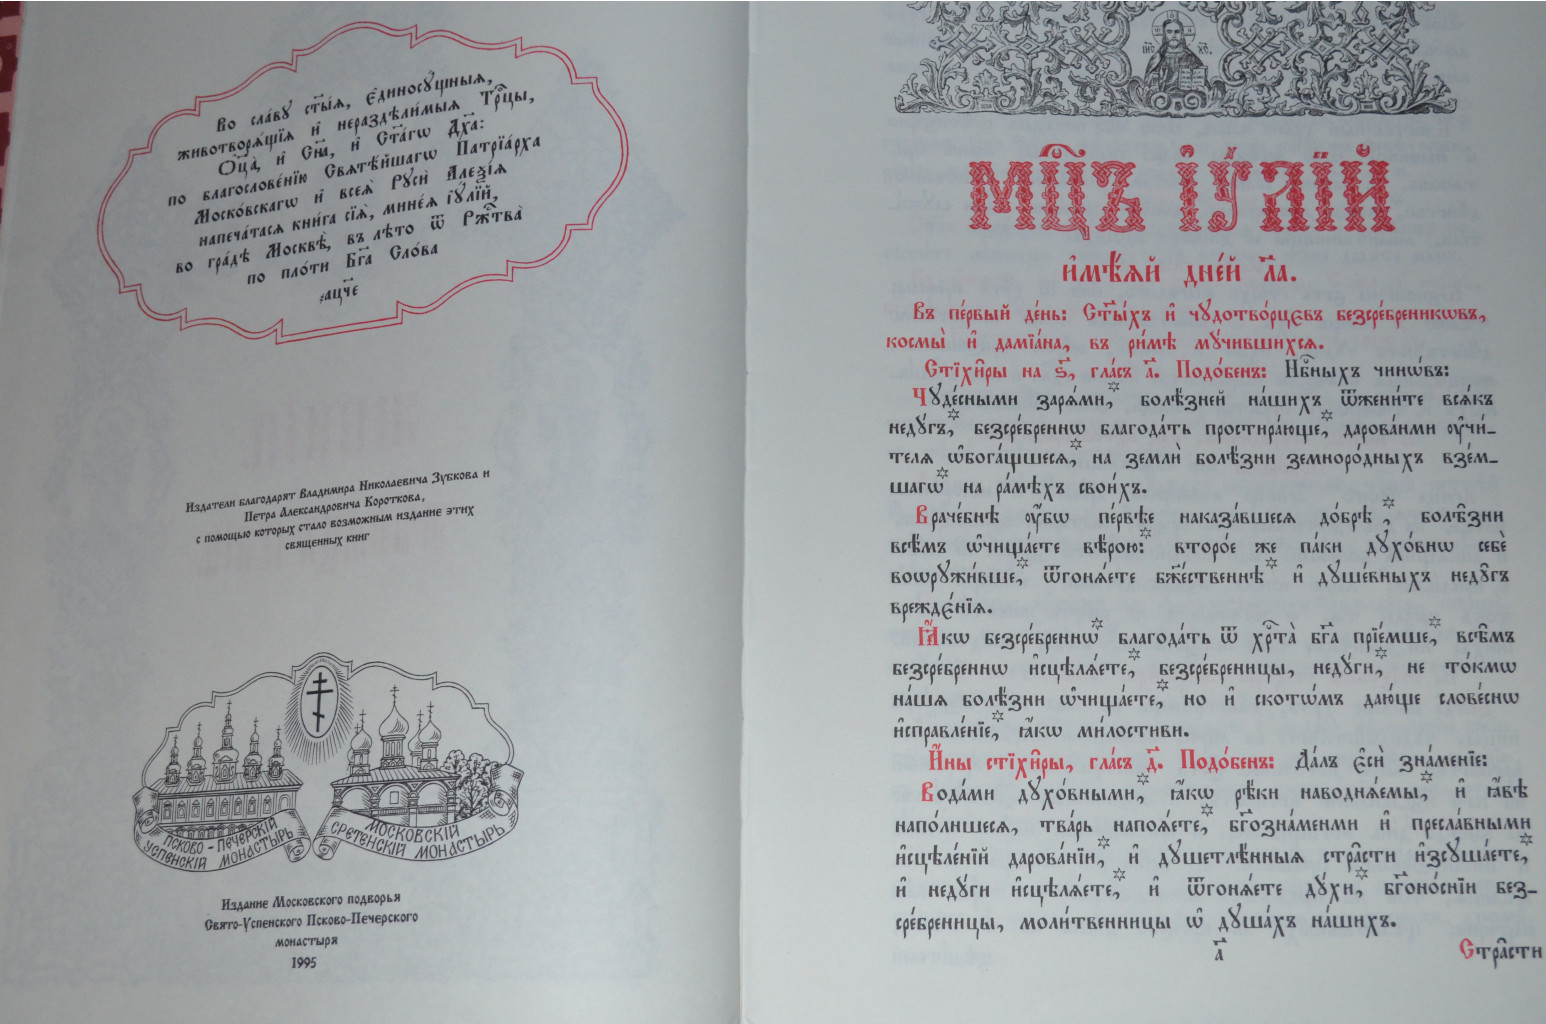 Во сла́вꙋ ст҃ы́ѧ, є҆диносꙋ́щныѧ,
животворѧ́щїѧ и҆ нераздѣли́мыѧ Трⷪ҇цы,
Ѻ҆ц҃а̀, и҆ Сн҃а, и҆ Ст҃а́гѡ Дх҃а:
по благослове́нїю Свѧтѣ́йшагѡ Патрїа́рха
Моско́вскагѡ и҆ всеѧ̀ Рꙋсѝ Алеѯі́ѧ
напеча́тасѧ кни́га сїѧ̀, мине́ѧ і҆ꙋ́лїй,
во гра́дѣ Москвѣ̀, въ лѣ́то ѿ Ржⷭ҇тва̀
по пло́ти Бг҃а Сло́ва
҂ац҃че
Издатели благодарят Владимира Николаевича Зубкова и
Петра Александровича Короткова,
с помощью которых стало возможным издание этих
священных книг
ПСКОВО-ПЕЧЕРСКIЙ
УСПЕНСКIЙ МОНАСТЫРЬ
МОСКОВСКIЙ
СРЕТЕНСКIЙ МОНАСТЫРЬ
Издание Московского подворья
Свято-Успенского Псково-Печерского
монастыря
1995
І҆И҃С. Х҃С.
МЦ҇Ъ І҆Ꙋ́ЛЇЙ
и҆мѣ́ѧй дне́й л҃а.
Въ пе́рвый де́нь: Ст҃ы́хъ и҆ чꙋдотво́рцєвъ безсре́бреникѡвъ,
космы̀ и҆ дамїа́на, въ ри́мѣ мꙋ́чившихсѧ.
Стїхи̑ры на ѕ҃, гла́съ а҃. Подо́бенъ: Нбⷭ҇ныхъ чинѡ́въ:
Чꙋде́сными зарѧ́ми,* болѣ́зней на́шихъ ѿжени́те всѧ́къ
недꙋ́гъ,* безсре́бреннѡ благода́ть простира́юще,* дарова́ньми ᲂу҆чи́-
телѧ ѡ҆бога́щшесѧ,* на землѝ болѣ̑зни земноро́дныхъ взе́м-
шагѡ* на ра́мѣхъ свои́хъ.
Враче́бнѣ ᲂу҆́бѡ пе́рвѣе наказа́вшесѧ до́брѣ,* болѣ̑зни
всѣ̑мъ ѡ҆чища́ете вѣ́рою:* второ́е же па́ки дꙋхо́внѡ себѐ
воѡрꙋжи́вше,* ѿгонѧ́ете бж҃е́ственнѣ* и҆ дꙋше́вныхъ недꙋ̑гъ
врежде́нїѧ.
Ꙗ҆́кѡ безсре́бреннѡ* благода́ть ѿ хрⷭ҇та̀ бг҃а прїе́мше,* всѣ̑мъ
безсре́бреннѡ и҆сцѣлѧ́ете,* безсре́бреницы, недꙋ́ги,* не то́кмѡ
на́шѧ болѣ̑зни ѡ҆чища́ете,* но и҆ скотѡ́мъ даю́ще слове́снѡ
и҆справле́нїе,* ꙗ҆́кѡ ми́лостиви.
И҆́ны стїхи̑ры, гла́съ д҃. Подо́бенъ: Да́лъ є҆сѝ зна́менїе:
Вода́ми дꙋхо́вными,* ꙗ҆́кѡ рѣ́ки наводнѧ́емы,* и҆ ꙗ҆́вѣ
напо́лншесѧ, тва́рь напоѧ́ете,* бг҃озна́меньми и҆ пресла́вными
и҆сцѣле́нїй дарова́нїи,* и҆ дꙋшетлѣ́нныѧ стра̑сти и҆зсꙋша́ете,*
и҆ недꙋ́ги и҆сцѣлѧ́ете,* и҆ ѿгонѧ́ете дꙋ́хи,* бг҃оно́снїи без-
сре́бреницы, моли́твенницы ѡ҆ дꙋша́хъ на́шихъ.
а҃
Стра̑сти